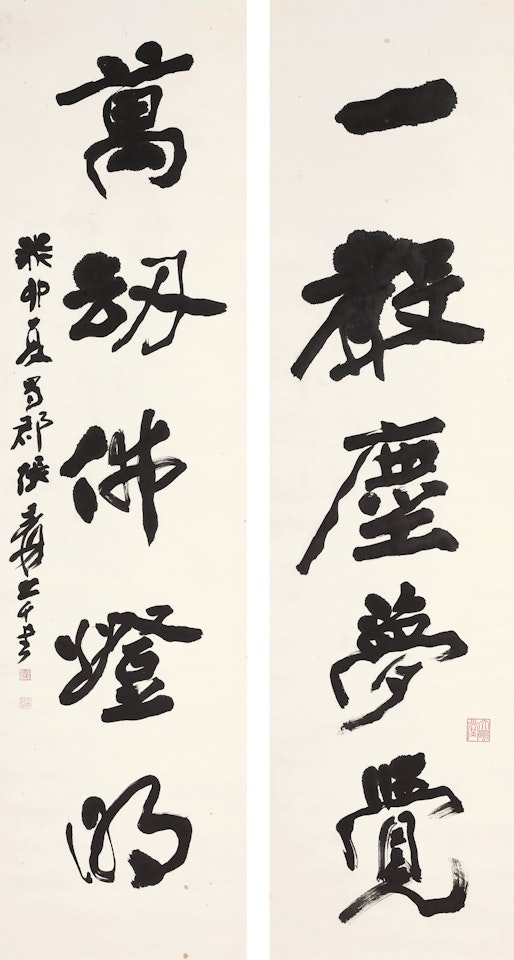 一聲塵夢覺
萬刼佛燈明
癸卯夏蜀郡張爰大千書